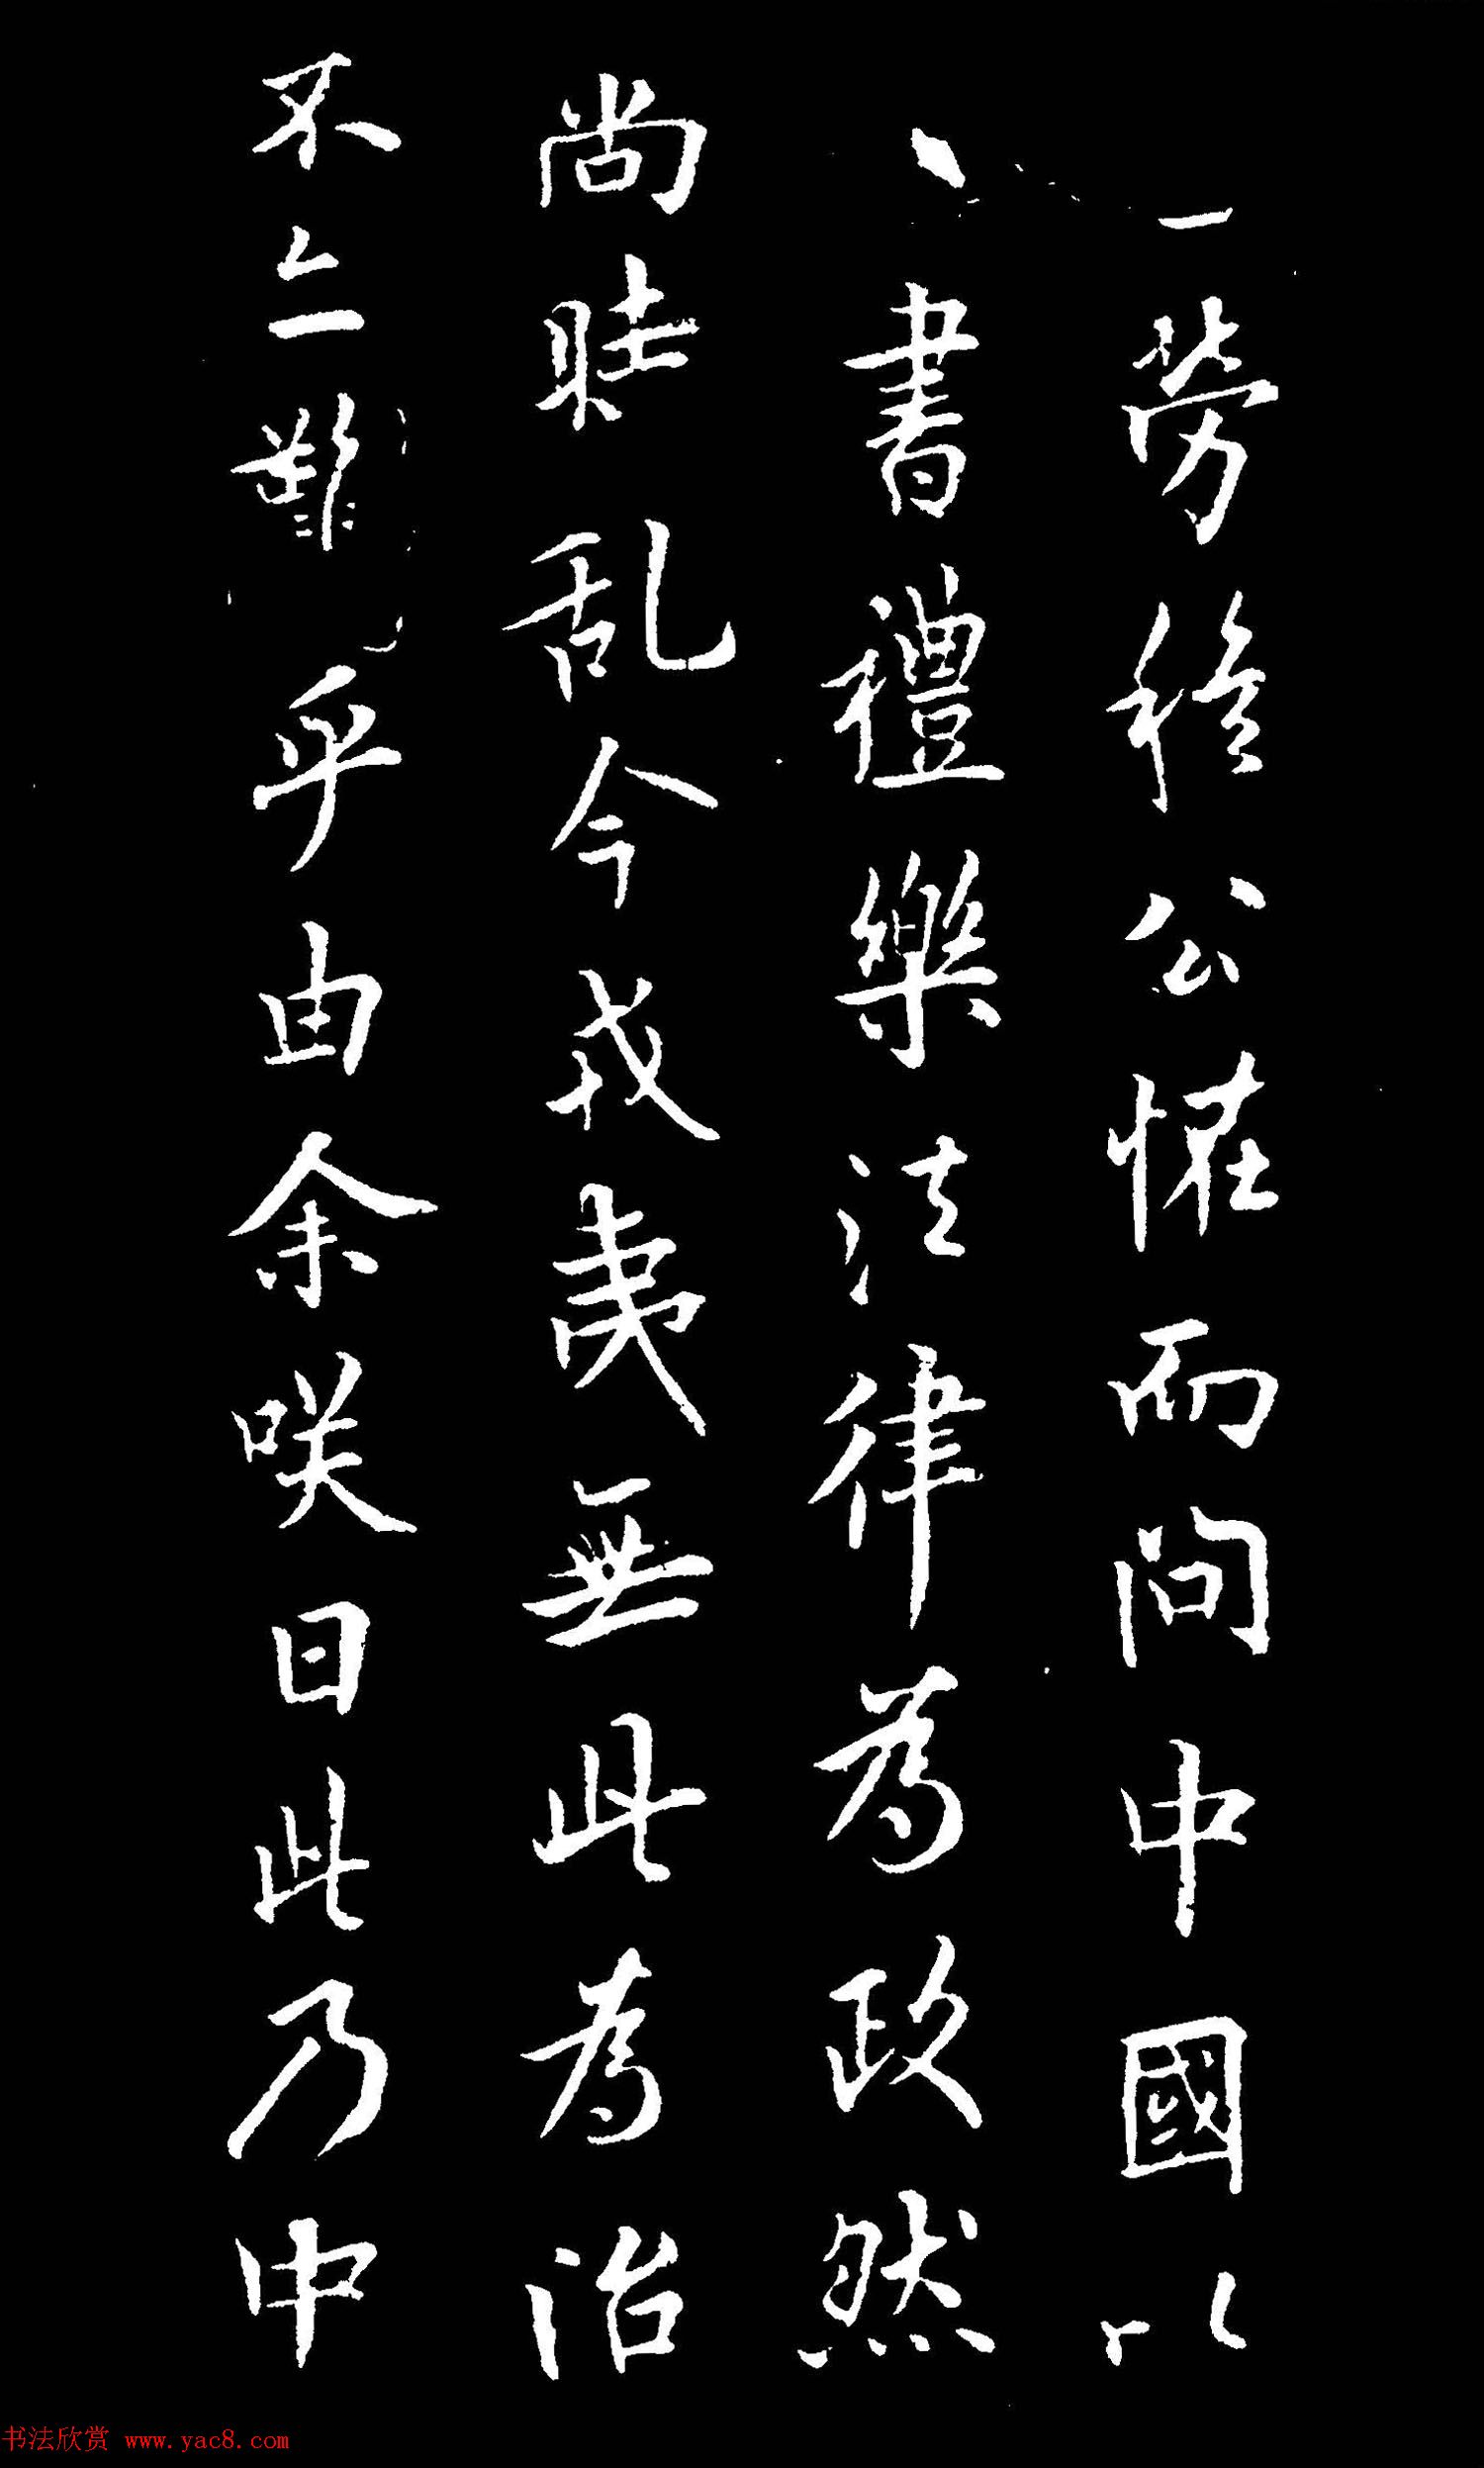 一劳穆公怪而問中國以
書禮樂法律為政然
尚時乱今戎夷無此為治
不亦難乎由余咲曰此乃中
书法欣赏 www.yac8.com